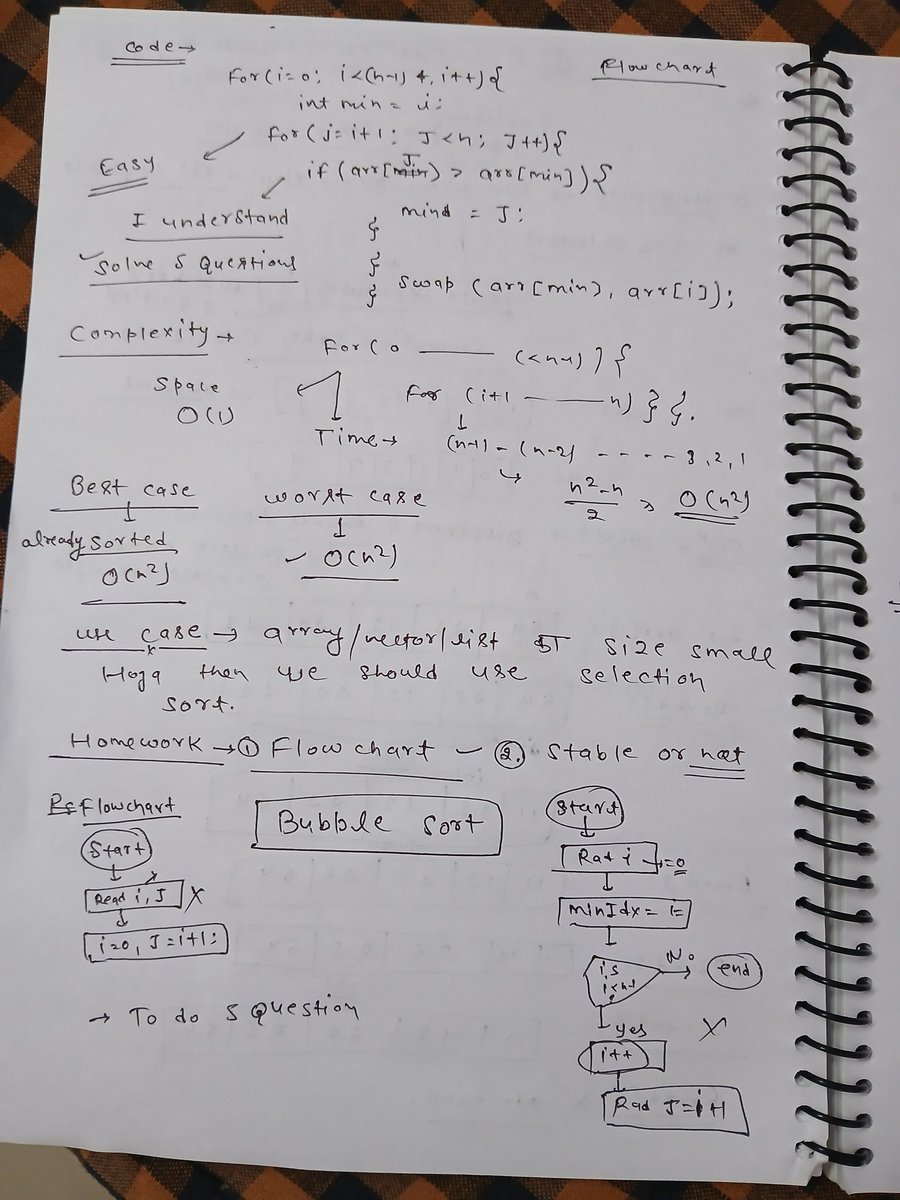 Code →
Flowchart
For(i=0; i<(n-1) ; i++){
int min = i;
For(j=i+1; J<n; J++){
Easy
if (arr[J] > arr[min]){
I understand
} mind = J;
✓ Solve 5 Questions
}
} Swap (arr[min], arr[i]);
Complexity →
For(0 —— (<n-1)) {
Space
For (i+1 —— n) } }.
O(1)
Time → (n-1) - (n-2) - - - - 3, 2, 1
Best case
worst case
n²-n / 2 > O(n²)
already sorted
O(n²)
✓ O(n²)
use case → array/vector/list का size small
Hoga then we should use selection
sort.
Homework → ① Flow chart ✓ ②. Stable or not
Flowchart
Bubble sort
Start
Start
Read i, J X
i=0, J=i+1;
→ To do 5 question
Rad i → =0
minIdx = i=
is i<n-1
No
end
yes
X
i++
Rad J=i+1